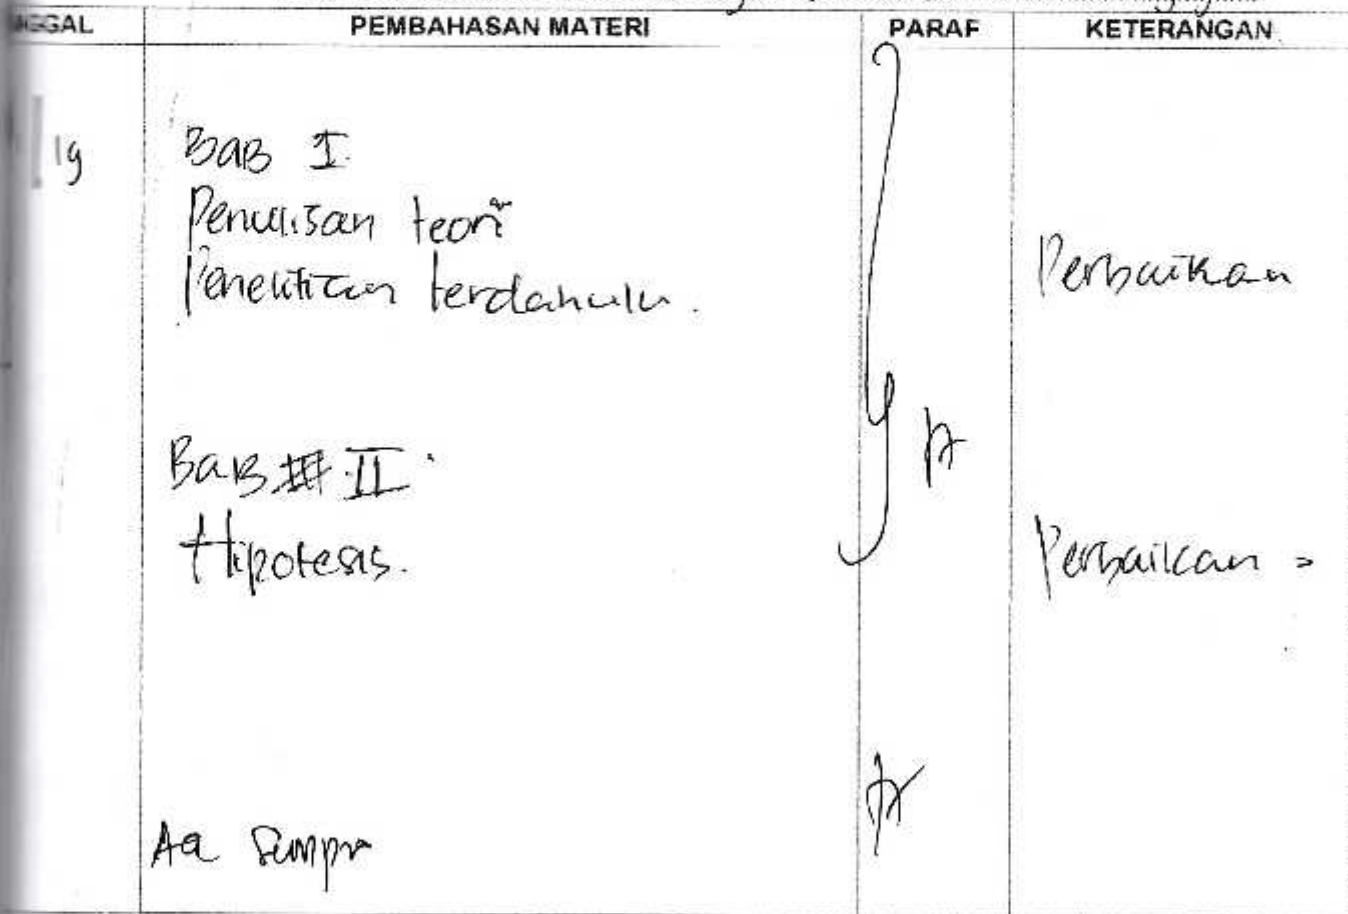 PEMBAHASAN MATERI PARAF KETERANGAN
19
BaB I
Penulisan teori
Penelitian terdahulu.
Perbaikan
BaB II
Hipotesis.
Perbaikan